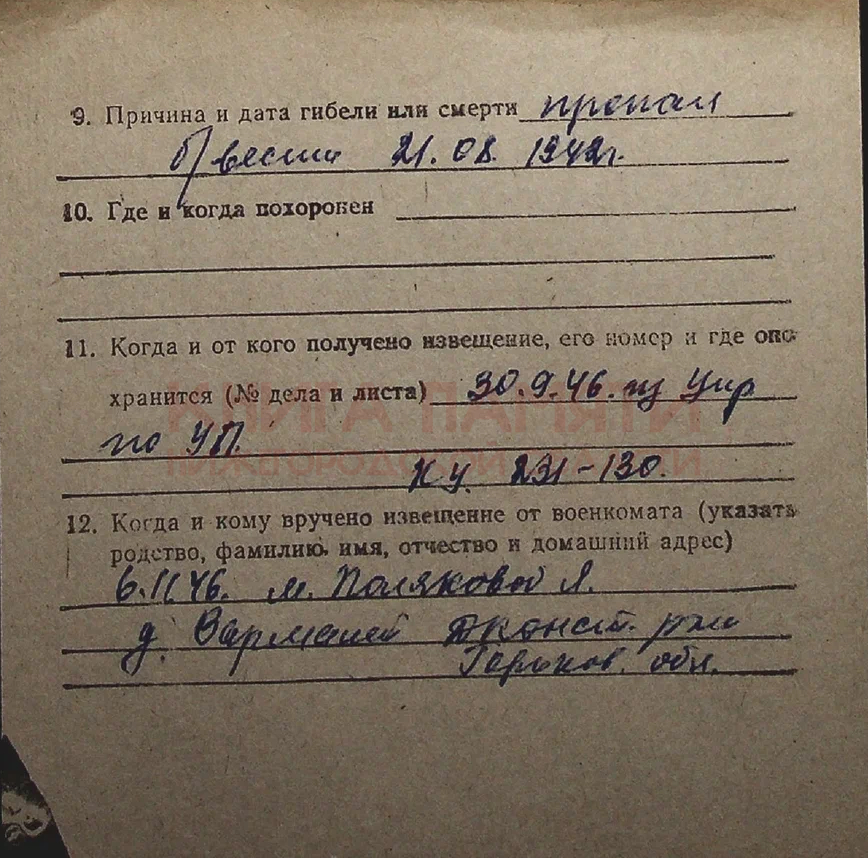 9. Причина и дата гибели или смерти пропал
б/вести 21.08. 1942г.
10. Где и когда похоронен
11. Когда и от кого получено извещение, его номер и где оно
хранится (№ дела и листа) 30.9.46. из Упр
по УП.
КНИГА ПАМЯТИ
НИЖЕГОРОДСКОЙ
ку 231-130.
12. Когда и кому вручено извещение от военкомата (указать
родство, фамилию, имя, отчество и домашний адрес)
6.11.46. м. Поляковой Л.
д. Вармалей Дконст. р-на
Горьков. обл.